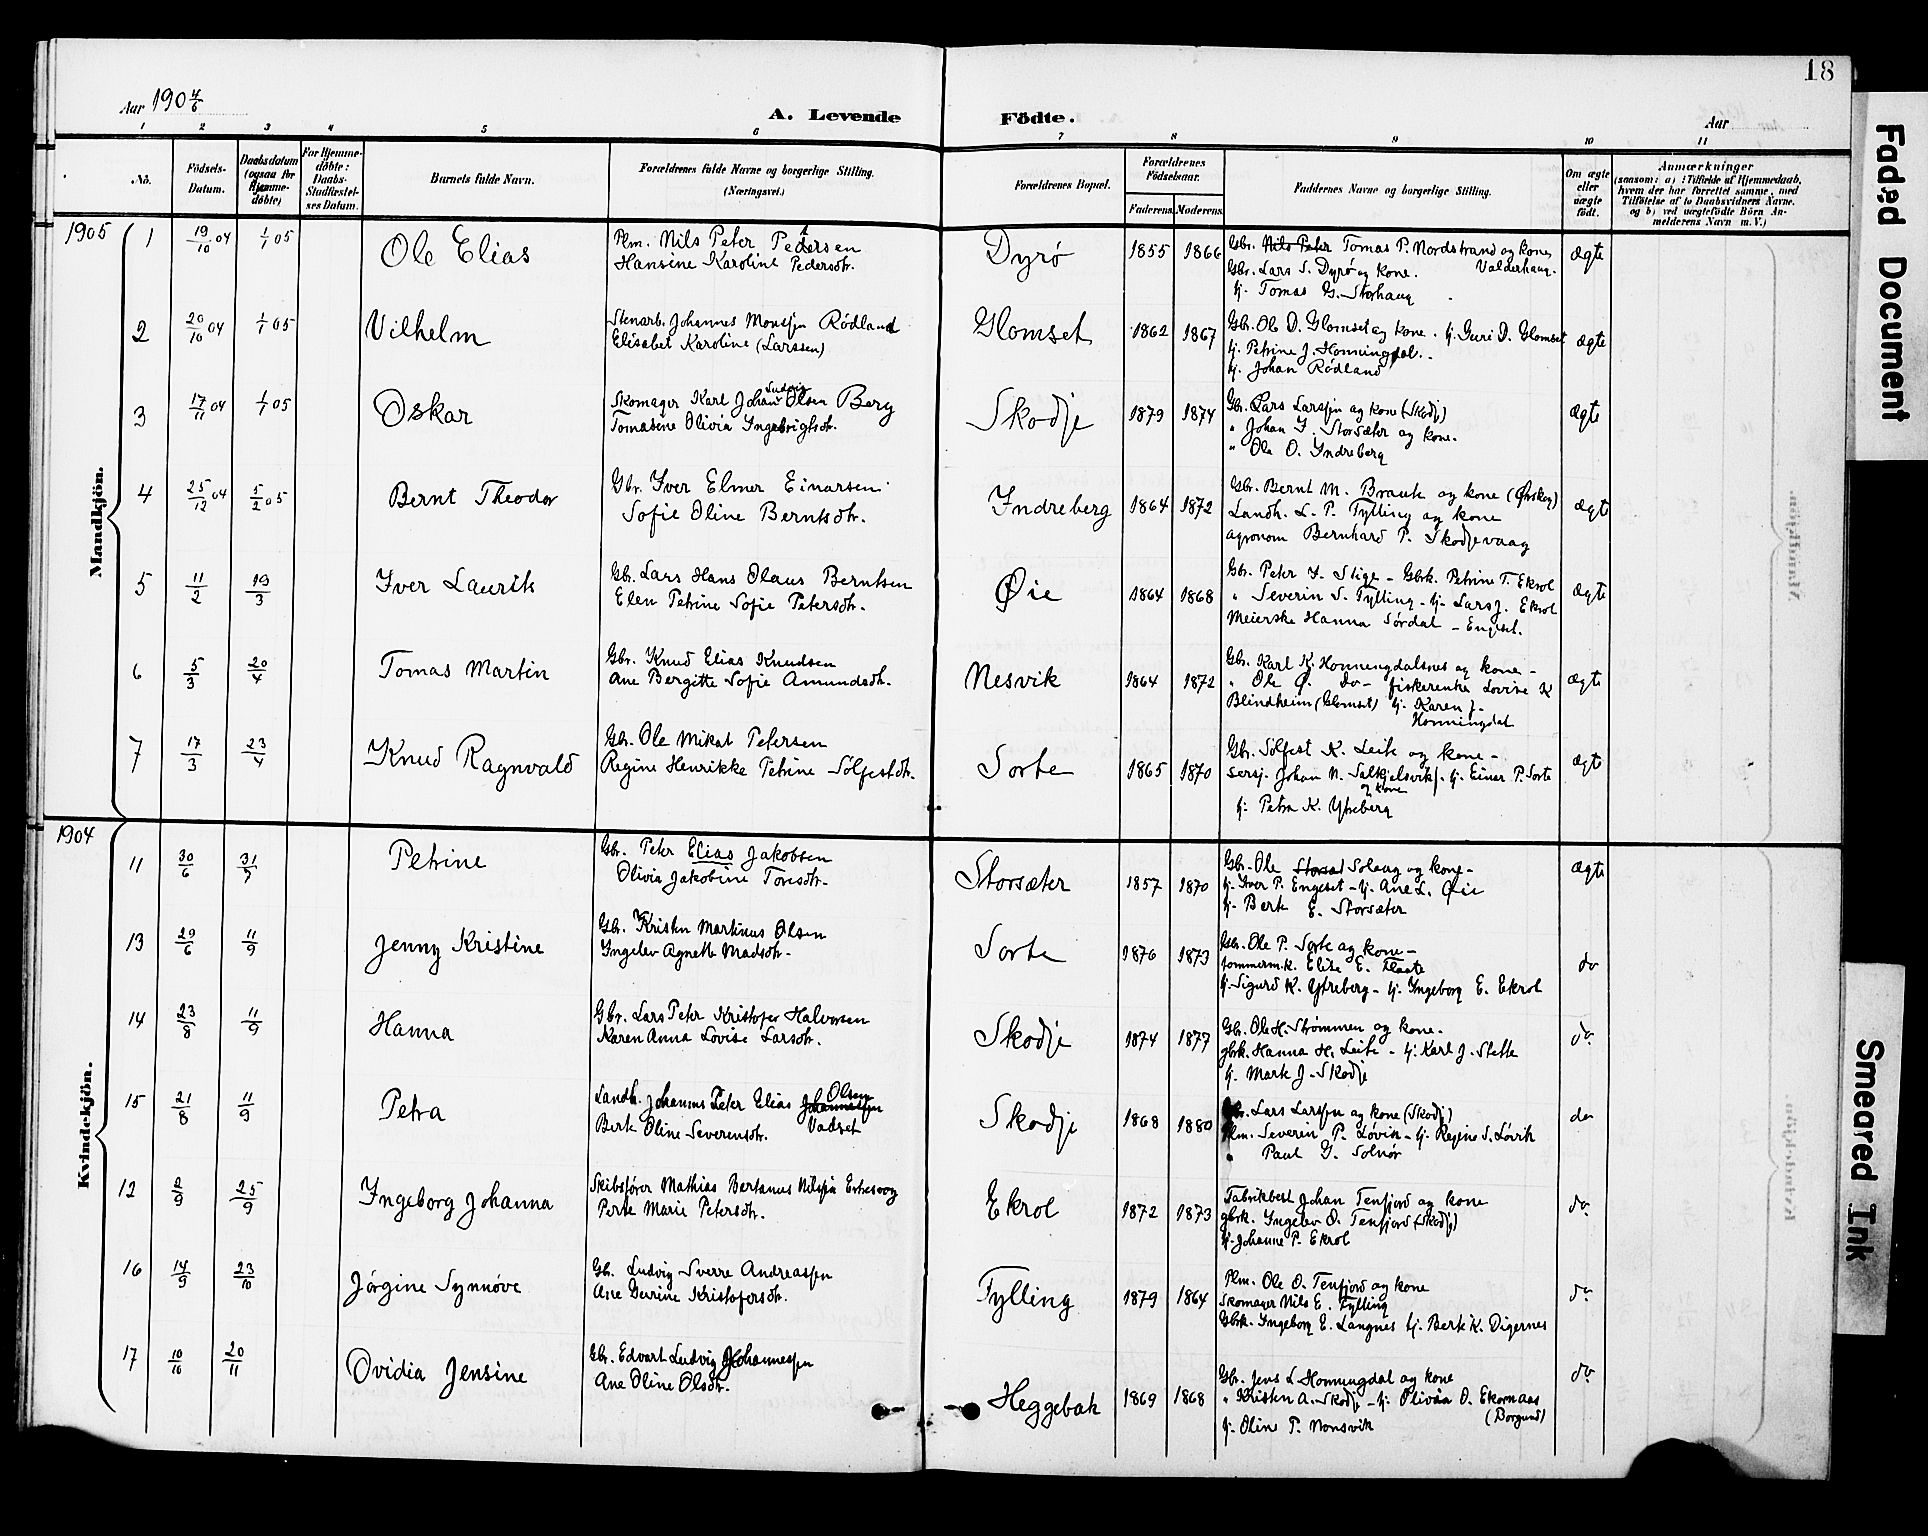 18
Aar 1904/5
A. Levende Födte.
Aar
1 2 3 4 5 6 7 8 9 10 11
No.
Födsels-Datum.
Daabsdatum (ogsaa for Hjemme-döbte)
For Hjemme-döbte: Daabs-Stadfæstel-ses Datum.
Barnets fulde Navn.
Forældrenes fulde Navne og borgerlige Stilling. (Næringsvei.)
Forældrenes Bopæl.
Forældrenes Födselsaar.
Faderens Moderens
Faddernes Navne og borgerlige Stilling.
Om ægte eller uægte födt.
Anmærkninger
(saasom: a) i Tilfælde af Hjemmedaab,
hvem der har forrettet samme, med
Tilföielse af to Daabsvidners Navne.
og b) ved uægtefödte Börn An-
melderens Navn m. V.)
Mandkjön.
1905
1 19/10 04 1/1 05 Ole Elias
Plm. Nils Peter Pedersen
Hansine Karoline Pedersdtr.
Dyrø 1855 1866
Gbr. Nils Peter Tomas P. Nordstrand og kone, Valderhaug.
Gbr. Lars S. Dyrø og kone.
Uj. Tomas G. Storhaug
ægte
2 20/10 04 1/1 05 Vilhelm
Stenarb. Johannes Monssen Rødland
Elisabet Karoline (Larssen)
Glomset 1862 1867
Gbr. Ole O. Glomset og kone. Uj. Guri D. Glomset
Uj. Petrine J. Honningdal.
Uj. Johan Rødland
ægte
3 17/11 04 1/1 05 Oskar
Skomager Karl Johan Ludvig Olsen Berg
Tomasine Olivia Ingebrigtsdtr.
Skodje 1879 1874
Gbr. Lars Larssen og kone (Skodj)
" Johan I. Storsæter og kone.
" Ole O. Indreberg
ægte
4 25/12 04 5/2 05 Bernt Theodor
Gbr. Iver Elmer Einarsen
Sofie Oline Berntsdtr.
Indreberg 1864 1872
Gbr. Bernt M. Brauth og kone (Ørskog)
Landh. L. P. Tylling og kone
agronom Bernhard P. Skodjevaag
ægte
5 11/2 19/3 Iver Laurits
Gbr. Lars Hans Olaus Berntsen
Elen Petrine Sofie Petersdtr.
Øie 1864 1868
Gbr. Peter I. Stige - Gbrk. Petrine T. Ekrol
" Severin S. Tylling - Uj. Lars J. Ekrol
Meierske Hanna Sørdal - Engset.
ægte
6 5/3 20/4 Tomas Martin
Gbr. Knud Elias Knudsen
Ane Bergitte Sofie Amundsdtr.
Nesvik 1864 1872
Gbr. Karl K. Honningdalsnes og kone -
" Ole Ø. do- fiskerenke Lovise K
Blindheim (Glomset) Uj. Karen J.
Honningdal
ægte
7 17/3 23/4 Knud Ragnvald
Gbr. Ole Mikal Petersen
Regine Henrikke Petrine Sølfestdtr.
Sorte 1865 1870
Gbr. Sølfest K. Leite og kone -
Sersj. Johan N. Solkjelsvik og kone - Uj. Einar P. Sorte
Uj. Petra K. Ytreberg
ægte
Kvindekjön.
1904
11 30/6 31/7 Petrine
Gbr. Peter Elias Jakobsen
Olivia Jakobine Toresdtr.
Storsæter 1857 1870
Gbr. Ole Solaug og kone -
Uj. Iver P. Engeset - Uj. Ane L. Øie
Uj. Berte E. Storsæter
ægte
13 29/6 11/9 Jenny Kristine
Gbr. Kristen Martinus Olsen
Ingelev Agnette Madsdtr.
Sorte 1876 1873
Gbr. Ole P. Sorte og kone -
Tommerm.k. Elise E. Flaate
Uj. Sigurd K. Ytreberg - Uj. Ingeborg E. Ekrol
do
14 23/8 11/9 Hanna
Gbr. Lars Peter Kristofer Halvorsen
Karen Anna Lovise Larsdtr.
Skodje 1874 1877
Gbr. Ole H. Strømmen og kone.
gbrk. Hanna H. Leite - Uj. Karl J. Stette
Uj. Marte J. Skodje
do
15 21/8 11/9 Petra
Landh. Johannes Peter Elias Johannessen Olsen Vadset
Berte Oline Severensdtr.
Skodje 1868 1880
Gbr. Lars Larssen og kone (Skodj)
Plm. Severin P. Løvik - Uj. Regine S. Løvik
" Paul G. Solnør
do
12 2/9 25/9 Ingeborg Johanna
Skibsfører Mathias Bertanus Nilssen Erkesvog
Perte Marie Petersdtr.
Ekrol 1872 1873
Fabrikbest. Johan Tenfjord og kone
gbrk. Ingelev O. Tenfjord (Skodj)
Uj. Johanne P. Ekrol
do
16 14/9 23/10 Jørgine Synnøve
Gbr. Ludvig Sverre Andreassen
Ane Gurine Kristofersdtr.
Tylling 1879 1864
Plm. Ole O. Tenfjord og kone
Skomager Nils E. Tylling
Gbrk. Ingeborg E. Langnes Uj. Berte K. Digernes
do
17 10/10 20/11 Ovidia Jensine
Gbr. Edvart Ludvig Johannessen
Ane Oline Olsdtr.
Heggebak 1869 1868
Gbr. Jens L Honningdal og kone
" Kristen A. Skodje - Uj. Olivia O. Ekornaas (Borgund)
Uj. Oline P. Nonsvik
do
Faded Document
Smeared Ink